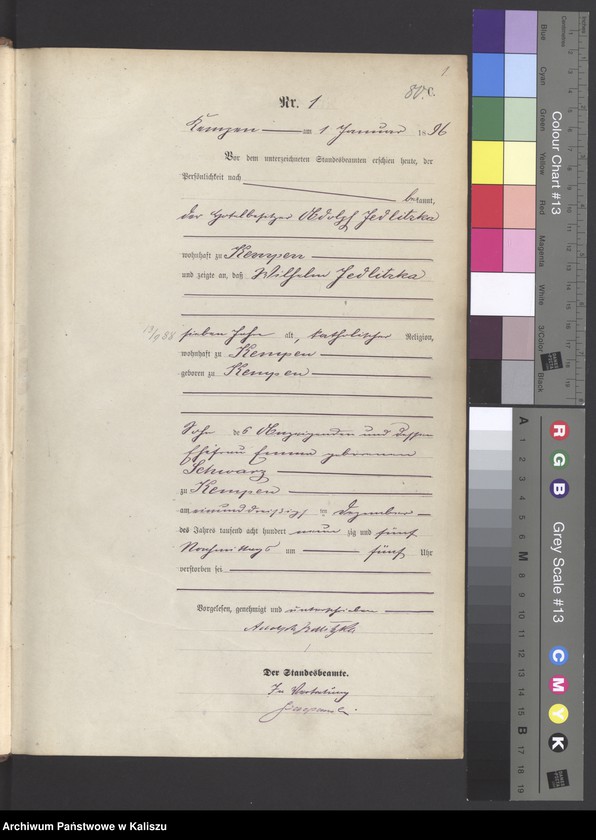 1
80. C.
Nr. 1
Kempen am 1 Januar 1896
Vor dem unterzeichneten Standesbeamten erschien heute, der
Persönlichkeit nach
bekannt,
der Hotelbesitzer Adolf Jedlitzka
wohnhaft zu Kempen
und zeigte an, daß Wilhelm Jedlitzka
13/9 88
sieben Jahre alt, katholischer Religion,
wohnhaft zu Kempen
geboren zu Kempen
Sohn des Anzeigenden und dessen
Ehefrau Emma geborenen
Schwarz
zu Kempen
am einunddreißigsten Dezember
des Jahres tausend acht hundert neunzig und fünf
Nachmittags um fünf Uhr
verstorben sei
Vorgelesen, genehmigt und unterschrieben
Adolf Jedlitzka
Der Standesbeamte.
In Vertretung
Colour Chart #13
Blue
Cyan
Green
Yellow
Red
Magenta
White
3/Color
Black
Centimetres
Inches
Grey Scale #13
R
G
B
C
M
Y
K
A 1 2 3 4 5 6 M 8 9 10 11 12 13 14 15 B 17 18 19
Archiwum Państwowe w Kaliszu